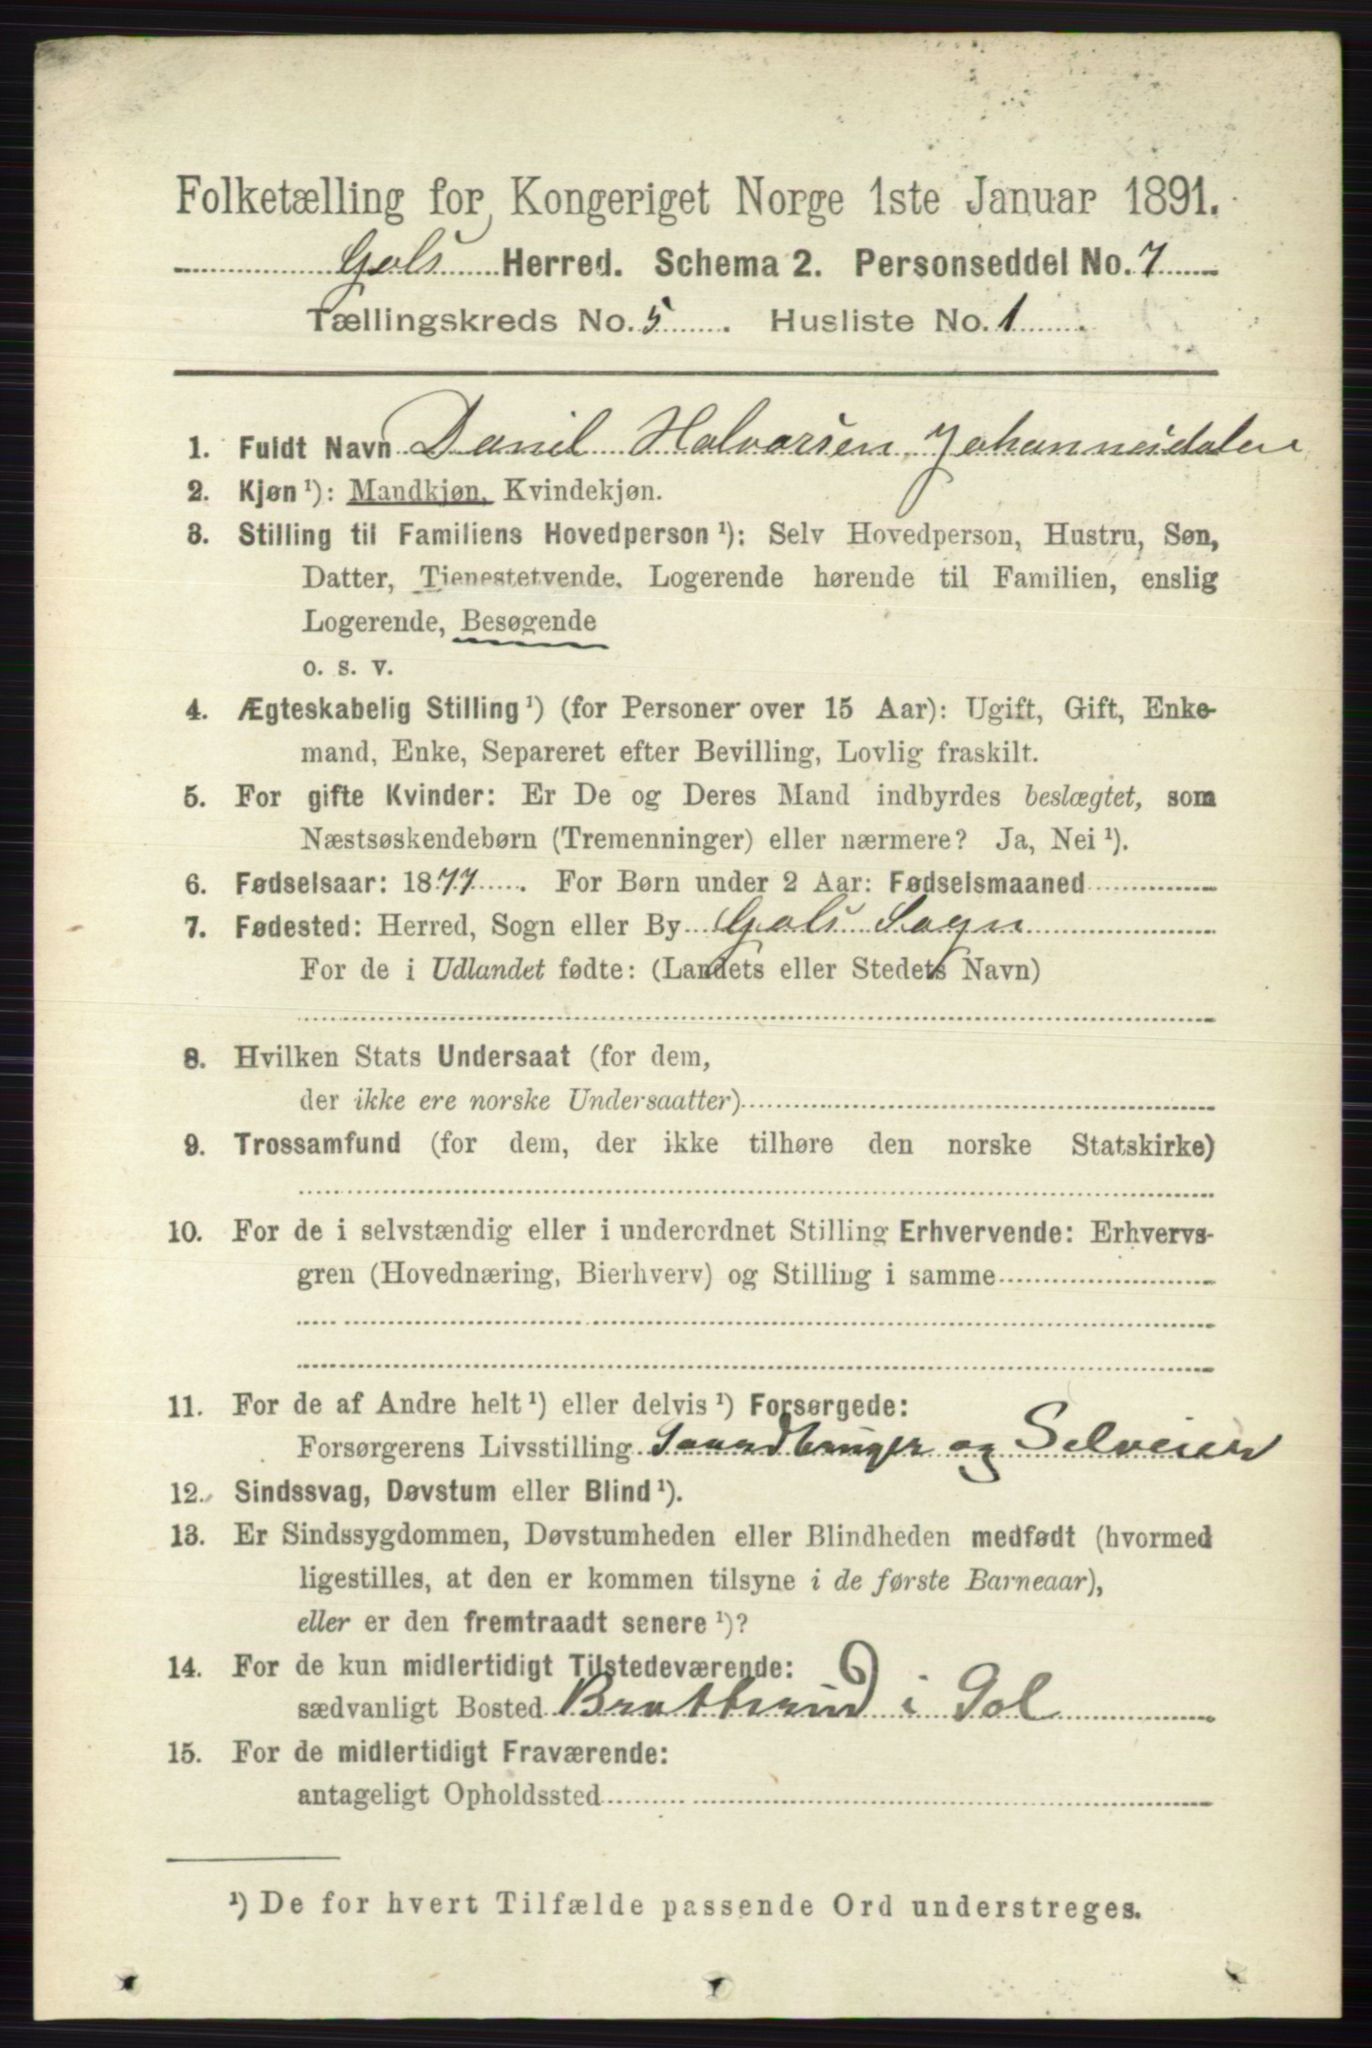 Folketælling for Kongeriget Norge 1ste Januar 1891.
Gols Herred. Schema 2. Personseddel No. 7
Tællingskreds No. 5. Husliste No. 1.
1. Fuldt Navn Danil Halvorsen Johannesdalen
2. Kjøn ¹): Mandkjøn, Kvindekjøn.
3. Stilling til Familiens Hovedperson ¹): Selv Hovedperson, Hustru, Søn,
Datter, Tjenestetyende, Logerende hørende til Familien, enslig
Logerende, Besøgende
o. s. v.
4. Ægteskabelig Stilling ¹) (for Personer over 15 Aar): Ugift, Gift, Enke-
mand, Enke, Separeret efter Bevilling, Lovlig fraskilt.
5. For gifte Kvinder: Er De og Deres Mand indbyrdes beslægtet, som
Næstsøskendebørn (Tremenninger) eller nærmere? Ja, Nei ¹).
6. Fødselsaar: 1877. For Børn under 2 Aar: Fødselsmaaned
7. Fødested: Herred, Sogn eller By Gols Sogn
For de i Udlandet fødte: (Landets eller Stedets Navn)
8. Hvilken Stats Undersaat (for dem,
der ikke ere norske Undersaatter)
9. Trossamfund (for dem, der ikke tilhøre den norske Statskirke)
10. For de i selvstændig eller i underordnet Stilling Erhvervende: Erhvervs-
gren (Hovednæring, Bierhverv) og Stilling i samme
11. For de af Andre helt ¹) eller delvis ¹) Forsørgede:
Forsørgerens Livsstilling Gaardbruger og Selveier
12. Sindssvag, Døvstum eller Blind ¹).
13. Er Sindssygdommen, Døvstumheden eller Blindheden medfødt (hvormed
ligestilles, at den er kommen tilsyne i de første Barneaar),
eller er den fremtraadt senere ¹)?
14. For de kun midlertidigt Tilstedeværende:
sædvanligt Bosted Bratterud i Gol
15. For de midlertidigt Fraværende:
antageligt Opholdssted
¹) De for hvert Tilfælde passende Ord understreges.